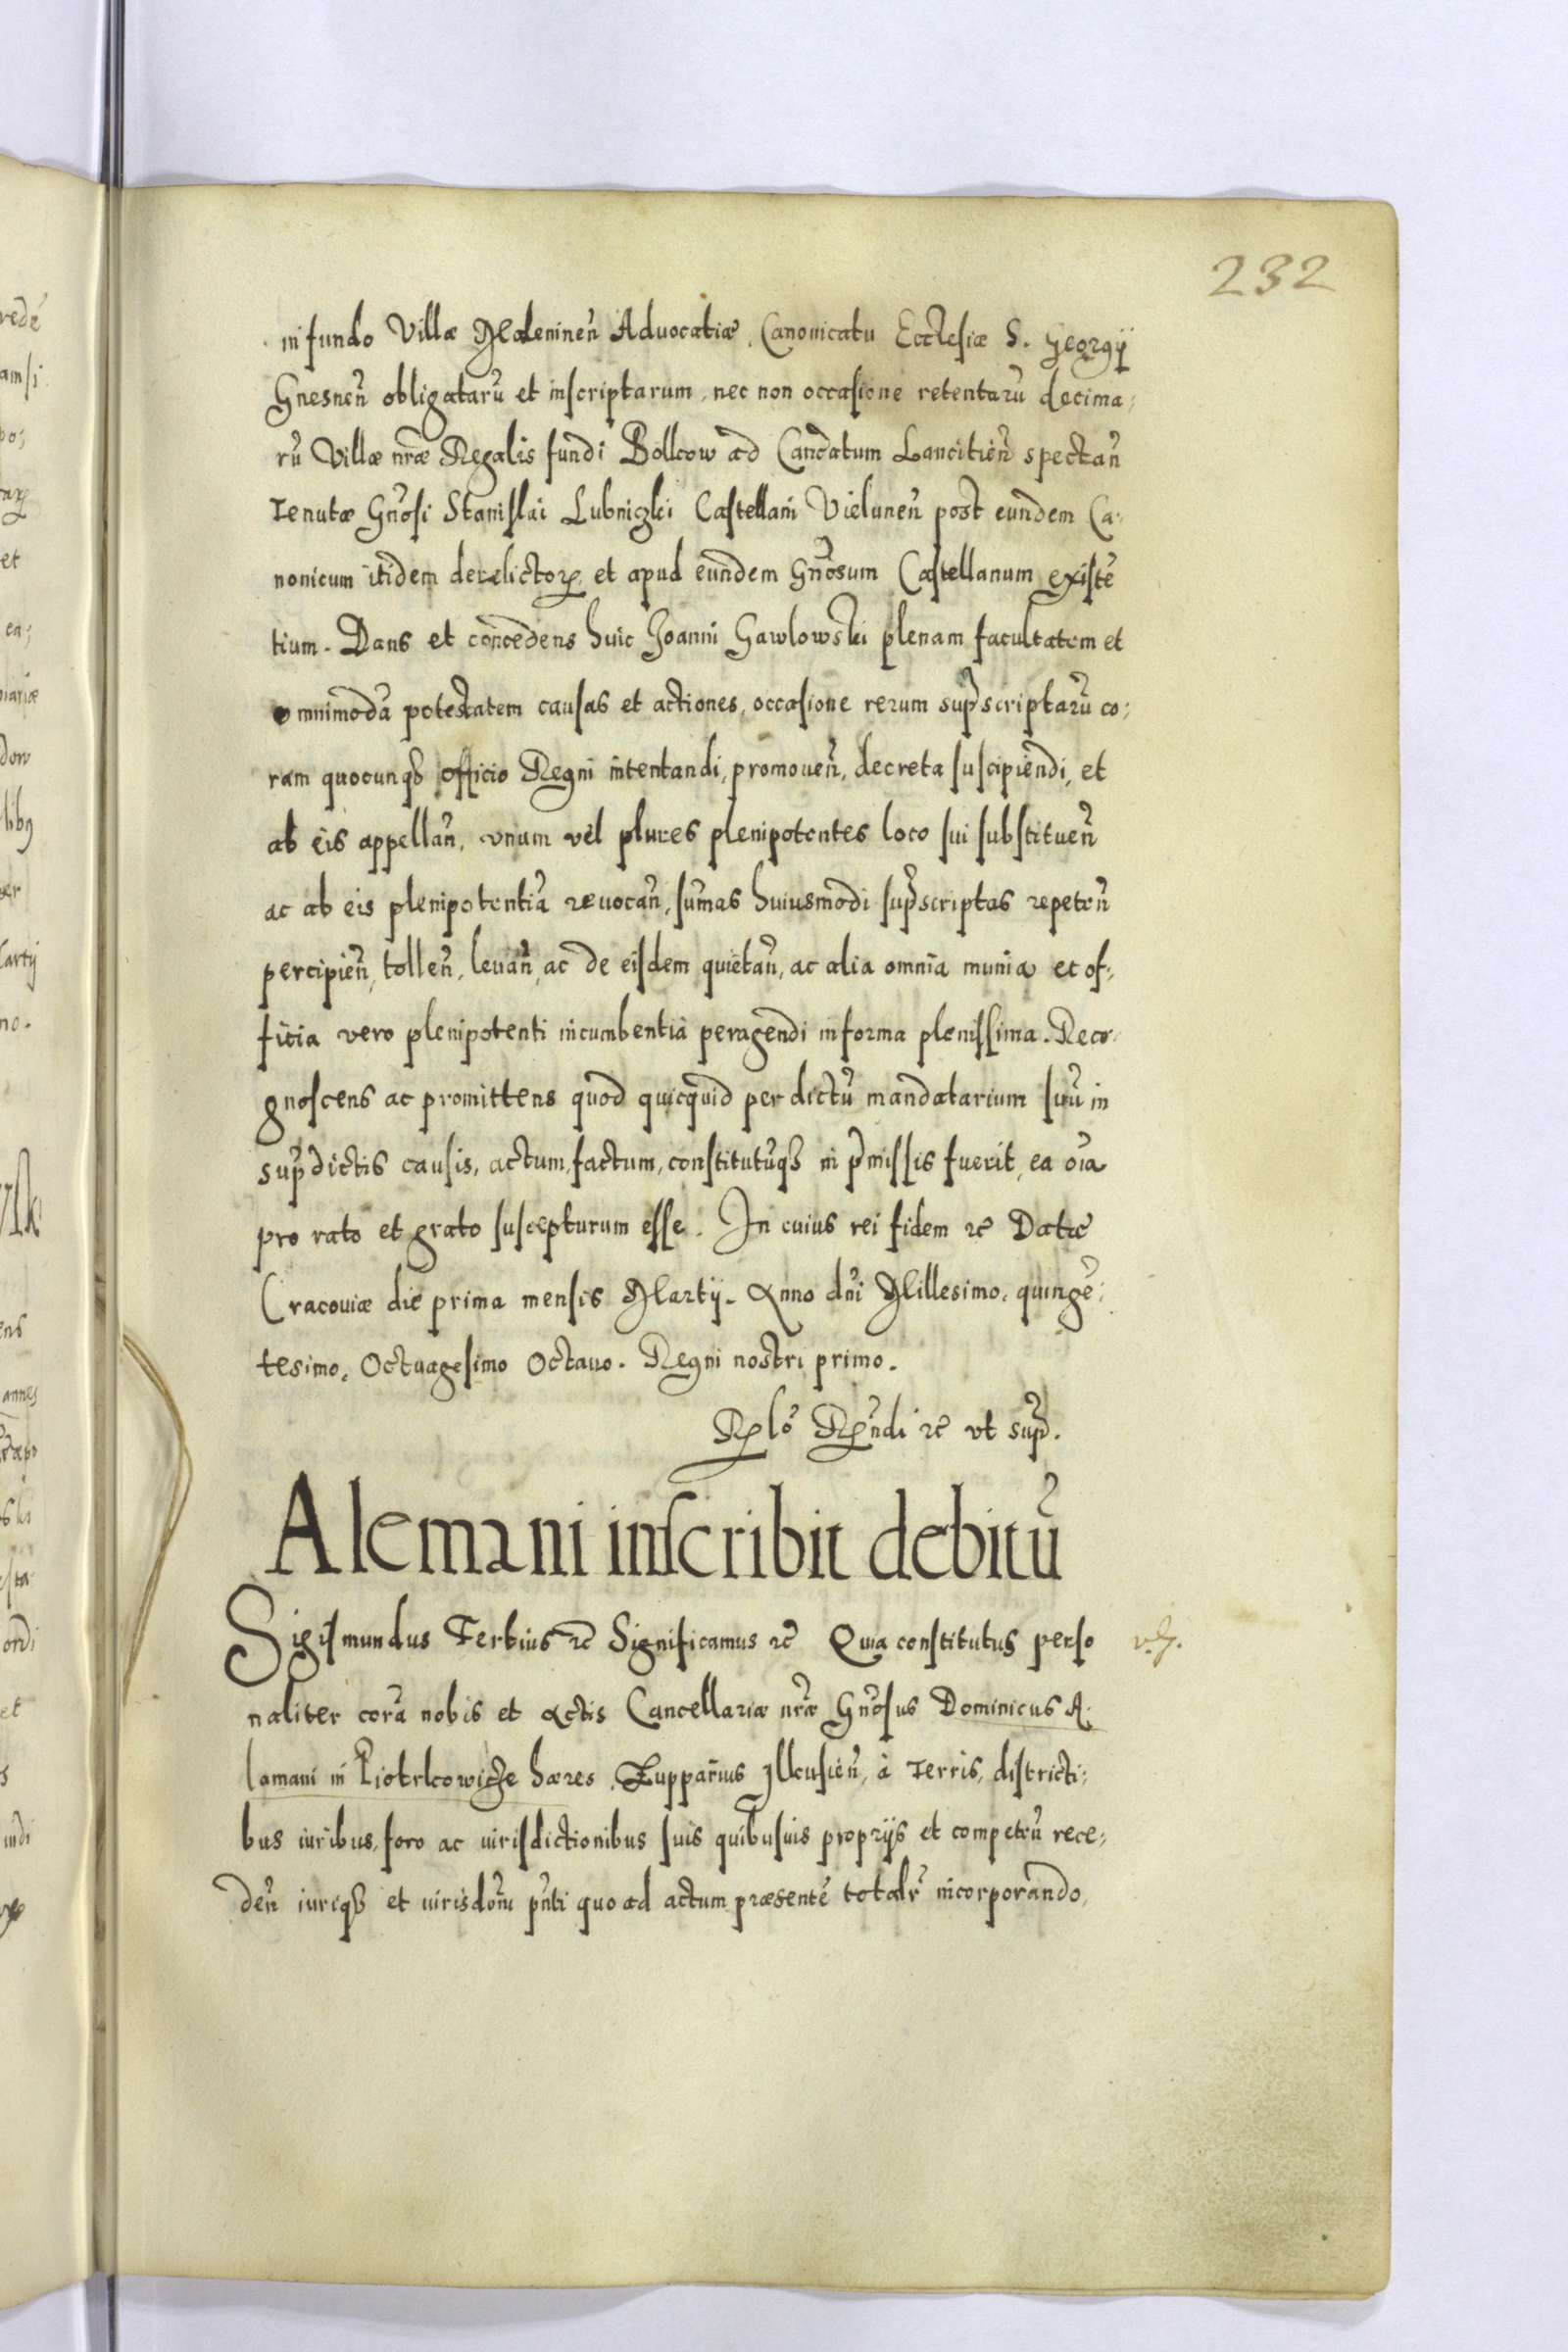 232
in fundo Villæ Maleninen̄ Advocatiæ, Canonicatu Ecclesiæ S. Georgÿ
Gnesnen̄ obligatarū et inscriptarum, nec non occasione retentarū decima;
rū Villæ nr̄æ Regalis fundi Bolkow ad Cancatum Lancitien̄ spectan̄
Tenutæ Gn̄osi Stanislai Lubniczki Castellani Vielunen̄ post eundem Ca;
nonicum itidem derelictoꝝ et apud eundem Gn̄osum Castellanum existē
tium. Dans et concedens huic Joanni Gawlowski plenam facultatem et
omnimodā potestatem causas et actiones, occasione rerum sup̄scriptarū co;
ram quocunqꝫ officio Regni intentandi, promouen̄, decreta suscipiendi, et
ab eis appellan̄, vnum vel plures plenipotentes loco sui substituen̄
ac ab eis plenipotentiā reuocan̄, sum̄as huiusmodi sup̄scriptas repeten̄
percipien̄, tollen̄, leuan̄, ac de eisdem quietan̄, ac alia omnia munia et of;
ficia vero plenipotenti incumbentia peragendi in forma plenissima. Reco;
gnoscens ac promittens quod quicquid per dictū mandatarium suū in
sup̄dictis causis, actum, factum, constitutūqꝫ in p̄missis fuerit, ea oīa
pro rato et grato suscepturum esse. In cuius rei fidem ⁊c̄ Datæ
Cracouiæ die prima mensis Martij. Anno dn̄i Millesimo, quingē;
tesimo, Octuagesimo Octauo. Regni nostri primo.
Rꝑlō Rꝑndi ⁊c̄ vt sup̄.
Alemani inscribit debitū
Sigismundus Tertius ⁊c̄ Significamus ⁊c̄ Quia constitutus perso
naliter corā nobis et Actis Cancellariæ nr̄æ Gn̄osus Dominicus A;
lamani in Piotrkowicze hæres, Zupparius Ilcusien̄, à Terris, districti;
bus iuribus, foro ac iurisdictionibus suis quibusuis proprijs et competen̄ rece;
den̄ iuriqꝫ et iurisdōni pn̄ti quo ad actum præsentē totalr̄ incorporando,